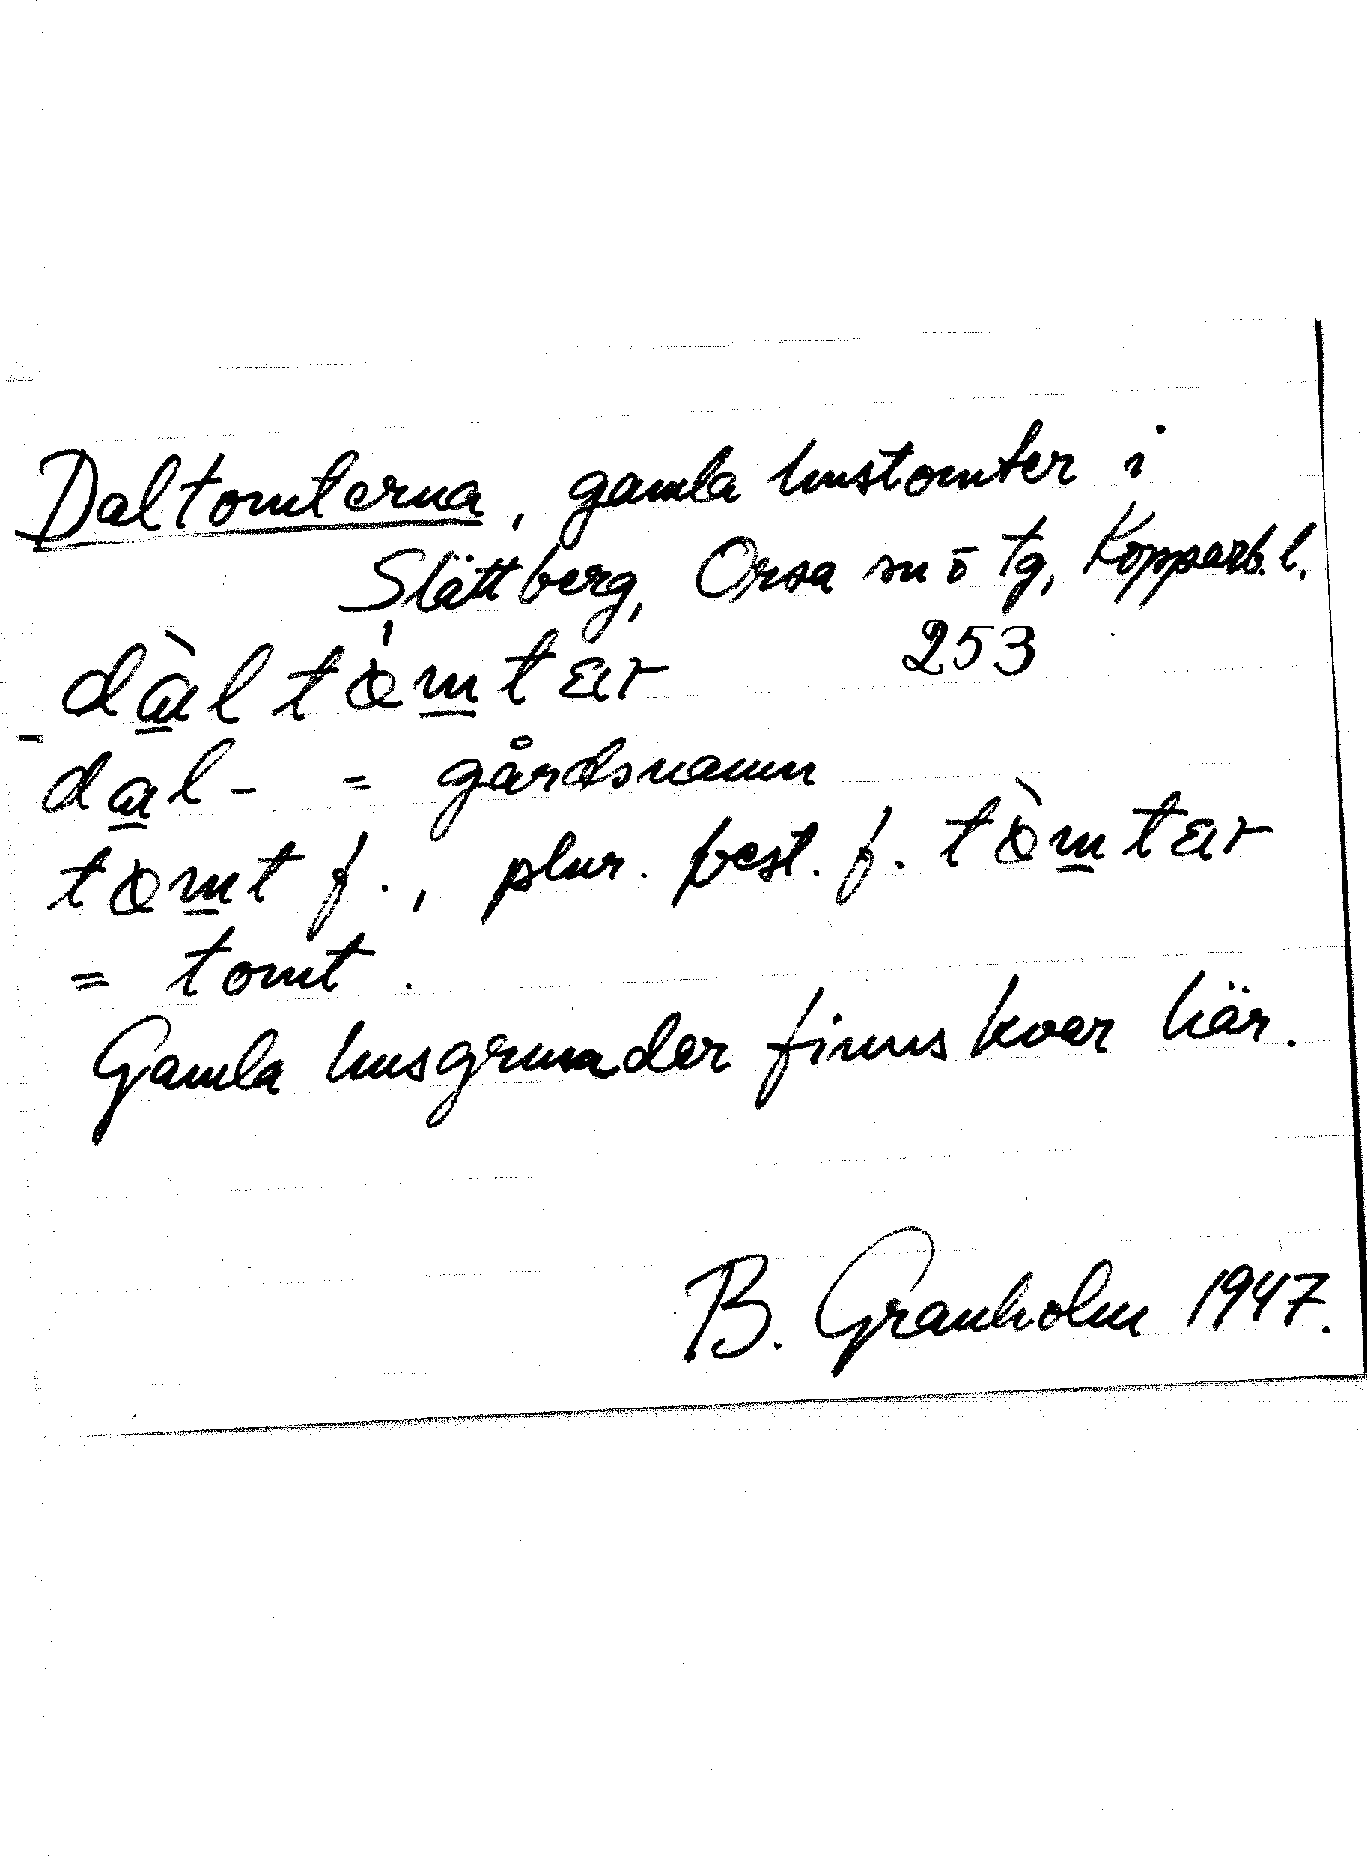 Daltomterna, gamla hustomter i
Slättberg, Orsa sn o tg, Kopparb. l.
dàltömtær 253
dal- = gårdsnamn
tömt f., plur. best. f. tömtær
= tomt.
Gamla husgrunder finns kvar här.
B. Granholm 1947.